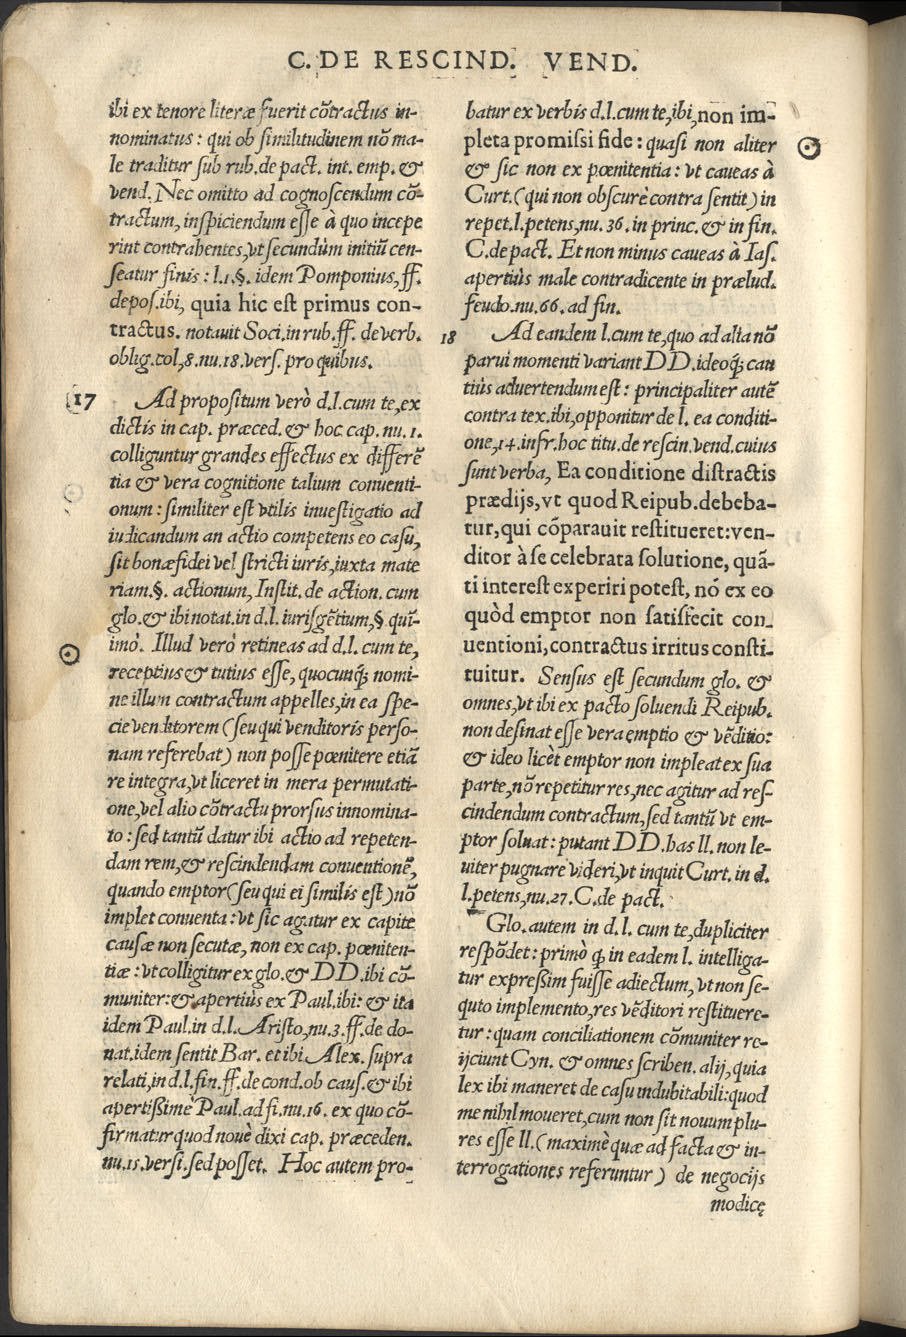 C. DE RESCIND. VEND.
ibi ex tenore literæ fuerit cõtractus in-
nominatus: qui ob similitudinem nõ ma-
le traditur sub rub. de pact. int. emp. &
vend. Nec omitto ad cognoscendum cõ-
tractum, inspiciendum esse à quo incepe
rint contrahentes, vt secundùm initiũ cen-
seatur finis: l.1.§. idem Pomponius, ff.
depos. ibi, quia hic est primus con-
tractus. notauit Soci. in rub. ff. de verb.
oblig. col, 8. nu. 18. vers. pro quibus.
17 Ad propositum verò d.l. cum te, ex
dictis in cap. præced. & hoc cap. nu. 1.
colliguntur grandes effectus ex differẽ
tia & vera cognitione talium conuenti-
onum: similiter est vtilis inuestigatio ad
iudicandum an actio competens eo casu,
sit bonæfidei vel stricti iuris, iuxta mate
riam. §. actionum, Instit. de action. cum
glo. & ibi notat. in d.l. iurisgẽtium, § quĩ-
imò. Illud verò retineas ad d.l. cum te,
receptius & tutius esse, quocunq́; nomi-
ne illum contractum appelles, in ea spe-
cie venditorem (seu qui venditoris perso-
nam referebat) non posse pœnitere etiã
re integra, vt liceret in mera permutati-
one, vel alio cõtractu prorsus innomina-
to: sed tantũ datur ibi actio ad repeten-
dam rem, & rescindendam conuentionẽ,
quando emptor (seu qui ei similis est) nõ
implet conuenta: vt sic agatur ex capite
causæ non secutæ, non ex cap. pœniten-
tiæ: vt colligitur ex glo. & DD. ibi cõ-
muniter: & apertiùs ex Paul. ibi: & ita
idem Paul. in d.l. Aristo, nu. 3. ff. de do-
nat. idem sentit Bar. et ibi Alex. supra
relati, in d.l. fin. ff. de cond. ob caus. & ibi
apertißimè Paul. ad fi. nu. 16. ex quo cõ-
firmatur quod nouè dixi cap. præceden.
nu. 15. versi. sed posset. Hoc autem pro-
batur ex verbis d.l. cum te, ibi, non im-
pleta promissi fide: quasi non aliter
& sic non ex pœnitentia: vt caueas à
Curt. (qui non obscurè contra sentit) in
repet. l. petens, nu. 36. in princ. & in fin.
C. de pact. Et non minus caueas à Ias.
apertiùs male contradicente in prælud.
feudo. nu. 66. ad fin.
18 Ad eandem l. cum te, quo ad alia nõ
parui momenti variant DD. ideoq́; cau
tiùs aduertendum est: principaliter autẽ
contra tex. ibi, opponitur de l. ea conditi-
one, 14. infr. hoc titu. de rescin. vend. cuius
sunt verba, Ea conditione distractis
prædijs, vt quod Reipub. debeba-
tur, qui cõparauit restitueret: ven-
ditor à se celebrata solutione, quã-
ti interest experiri potest, nõ ex eo
quòd emptor non satisfecit con-
uentioni, contractus irritus consti-
tuitur. Sensus est secundum glo. &
omnes, vt ibi ex pacto soluendi Reipub.
non desinat esse vera emptio & vẽditio:
& ideo licèt emptor non impleat ex sua
parte, nõ repetitur res, nec agitur ad res-
cindendum contractum, sed tantũ vt em-
ptor soluat: putant DD. has ll. non le-
uiter pugnare videri, vt inquit Curt. in d.
l. petens, nu. 27. C. de pact.
Glo. autem in d.l. cum te, dupliciter
respõdet: primò q́; in eadem l. intelliga-
tur expressim fuisse adiectum, vt non se-
quto implemento, res vẽditori restituere-
tur: quam conciliationem cõmuniter re-
ijciunt Cyn. & omnes scriben. alij, quia
lex ibi maneret de casu indubitabili: quod
me nihil moueret, cum non sit nouum plu-
res esse ll. (maximè quæ ad facta & in-
terrogationes referuntur) de negocijs
modicę